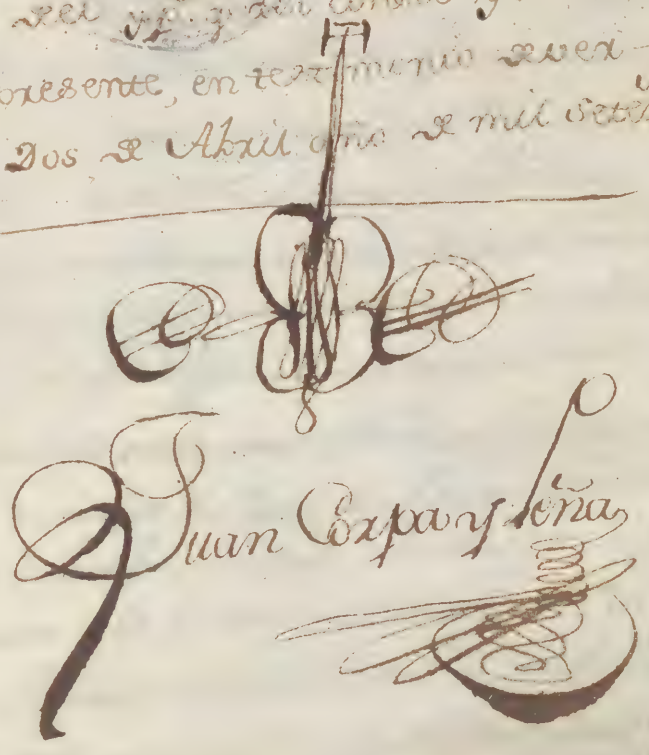 presente, en testimonio de ver
Dos de Abril año de mil setes
Juan Corpa y Peña